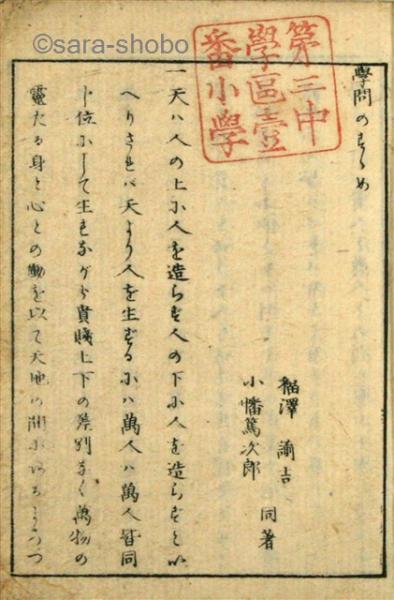 ©sara-shobo
第三中
學區壹
番小學
學問のすゝめ
福澤諭吉
小幡篤次郎
同著
一天ハ人の上に人を造らず人の下に人を造らずとい
へりされバ天より人を生ずるにハ萬人ハ萬人皆同
じ位にして生れながら貴賤上下の差別なく萬物の
靈たる身と心との働を以て天地の間にあるよろづ